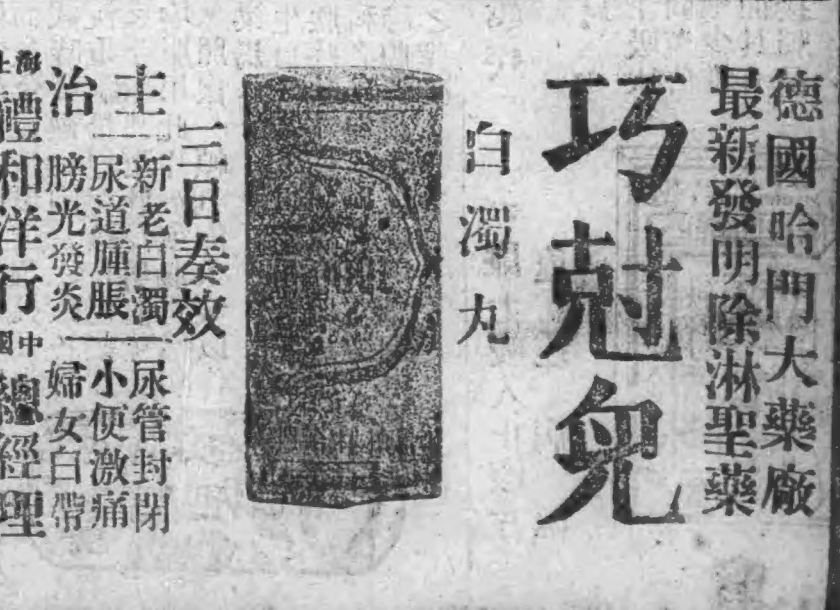 德國哈門大藥廠
最新發明除淋聖藥
巧尅兒
白濁丸
三日奏效
主治
新老白濁
尿道腫脹
膀光發炎
尿管封閉
小便激痛
婦女白帶
上海
禮和洋行
中國
總經理